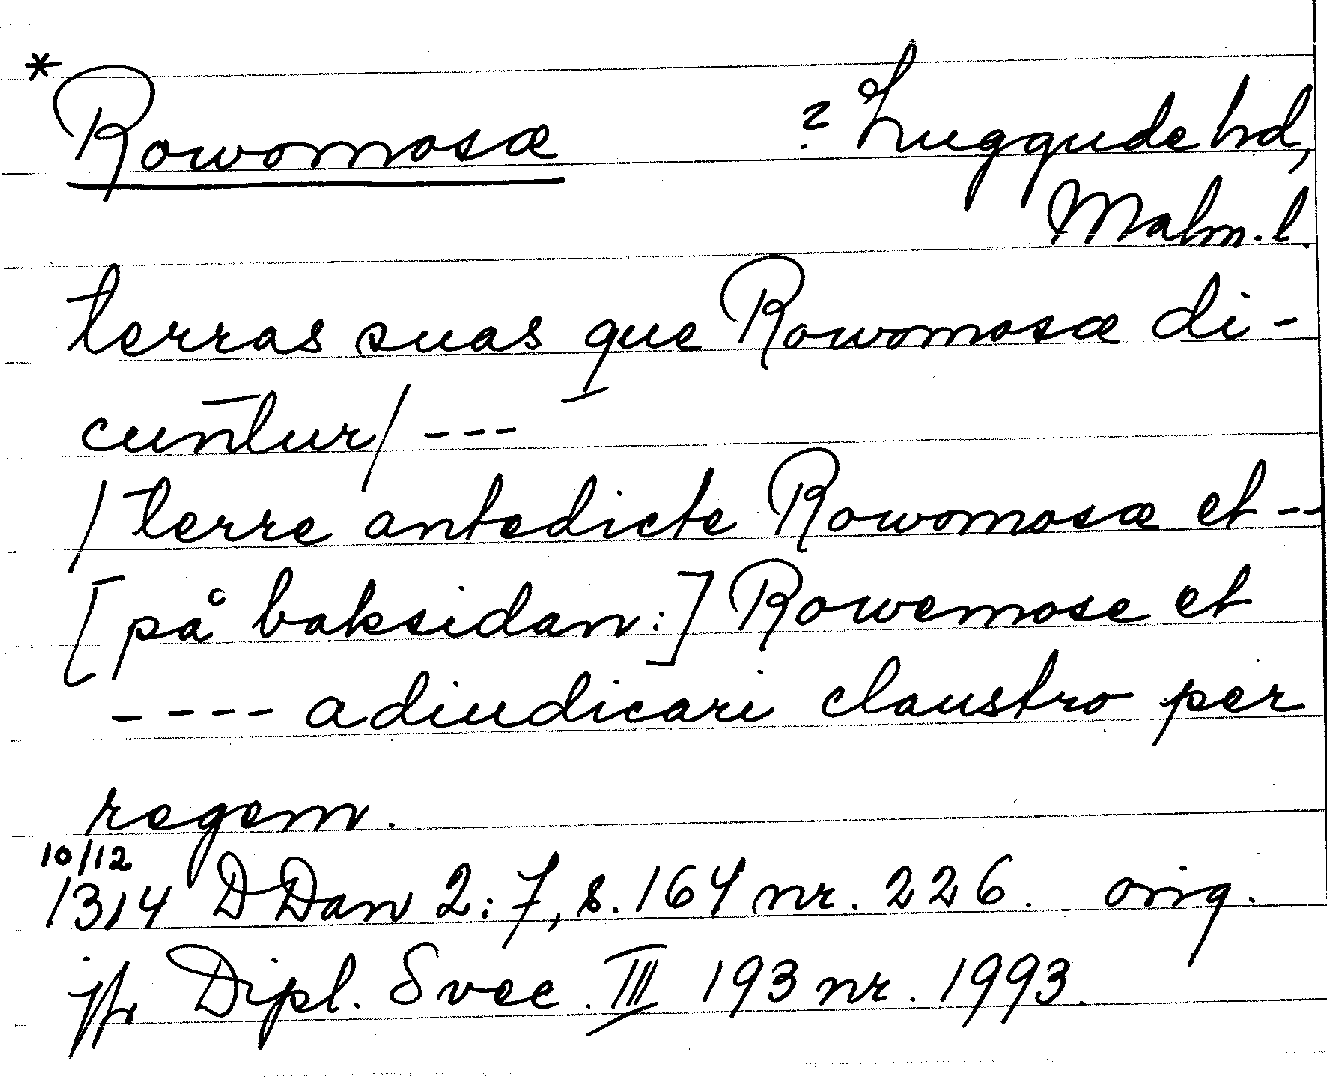 * Rowomosæ ? Luggude hd,
Malm. l.
terras suas que Rowomosæ di-
cuntur/ ---
/ terre antedicte Rowomosæ et --
[på baksidan:] Rowemose et
---- adiudicari claustro per
regem.
10/12
1314 DDan 2:7, s. 164 nr. 226. orig.
jfr Dipl. Svec. III 193 nr. 1993.